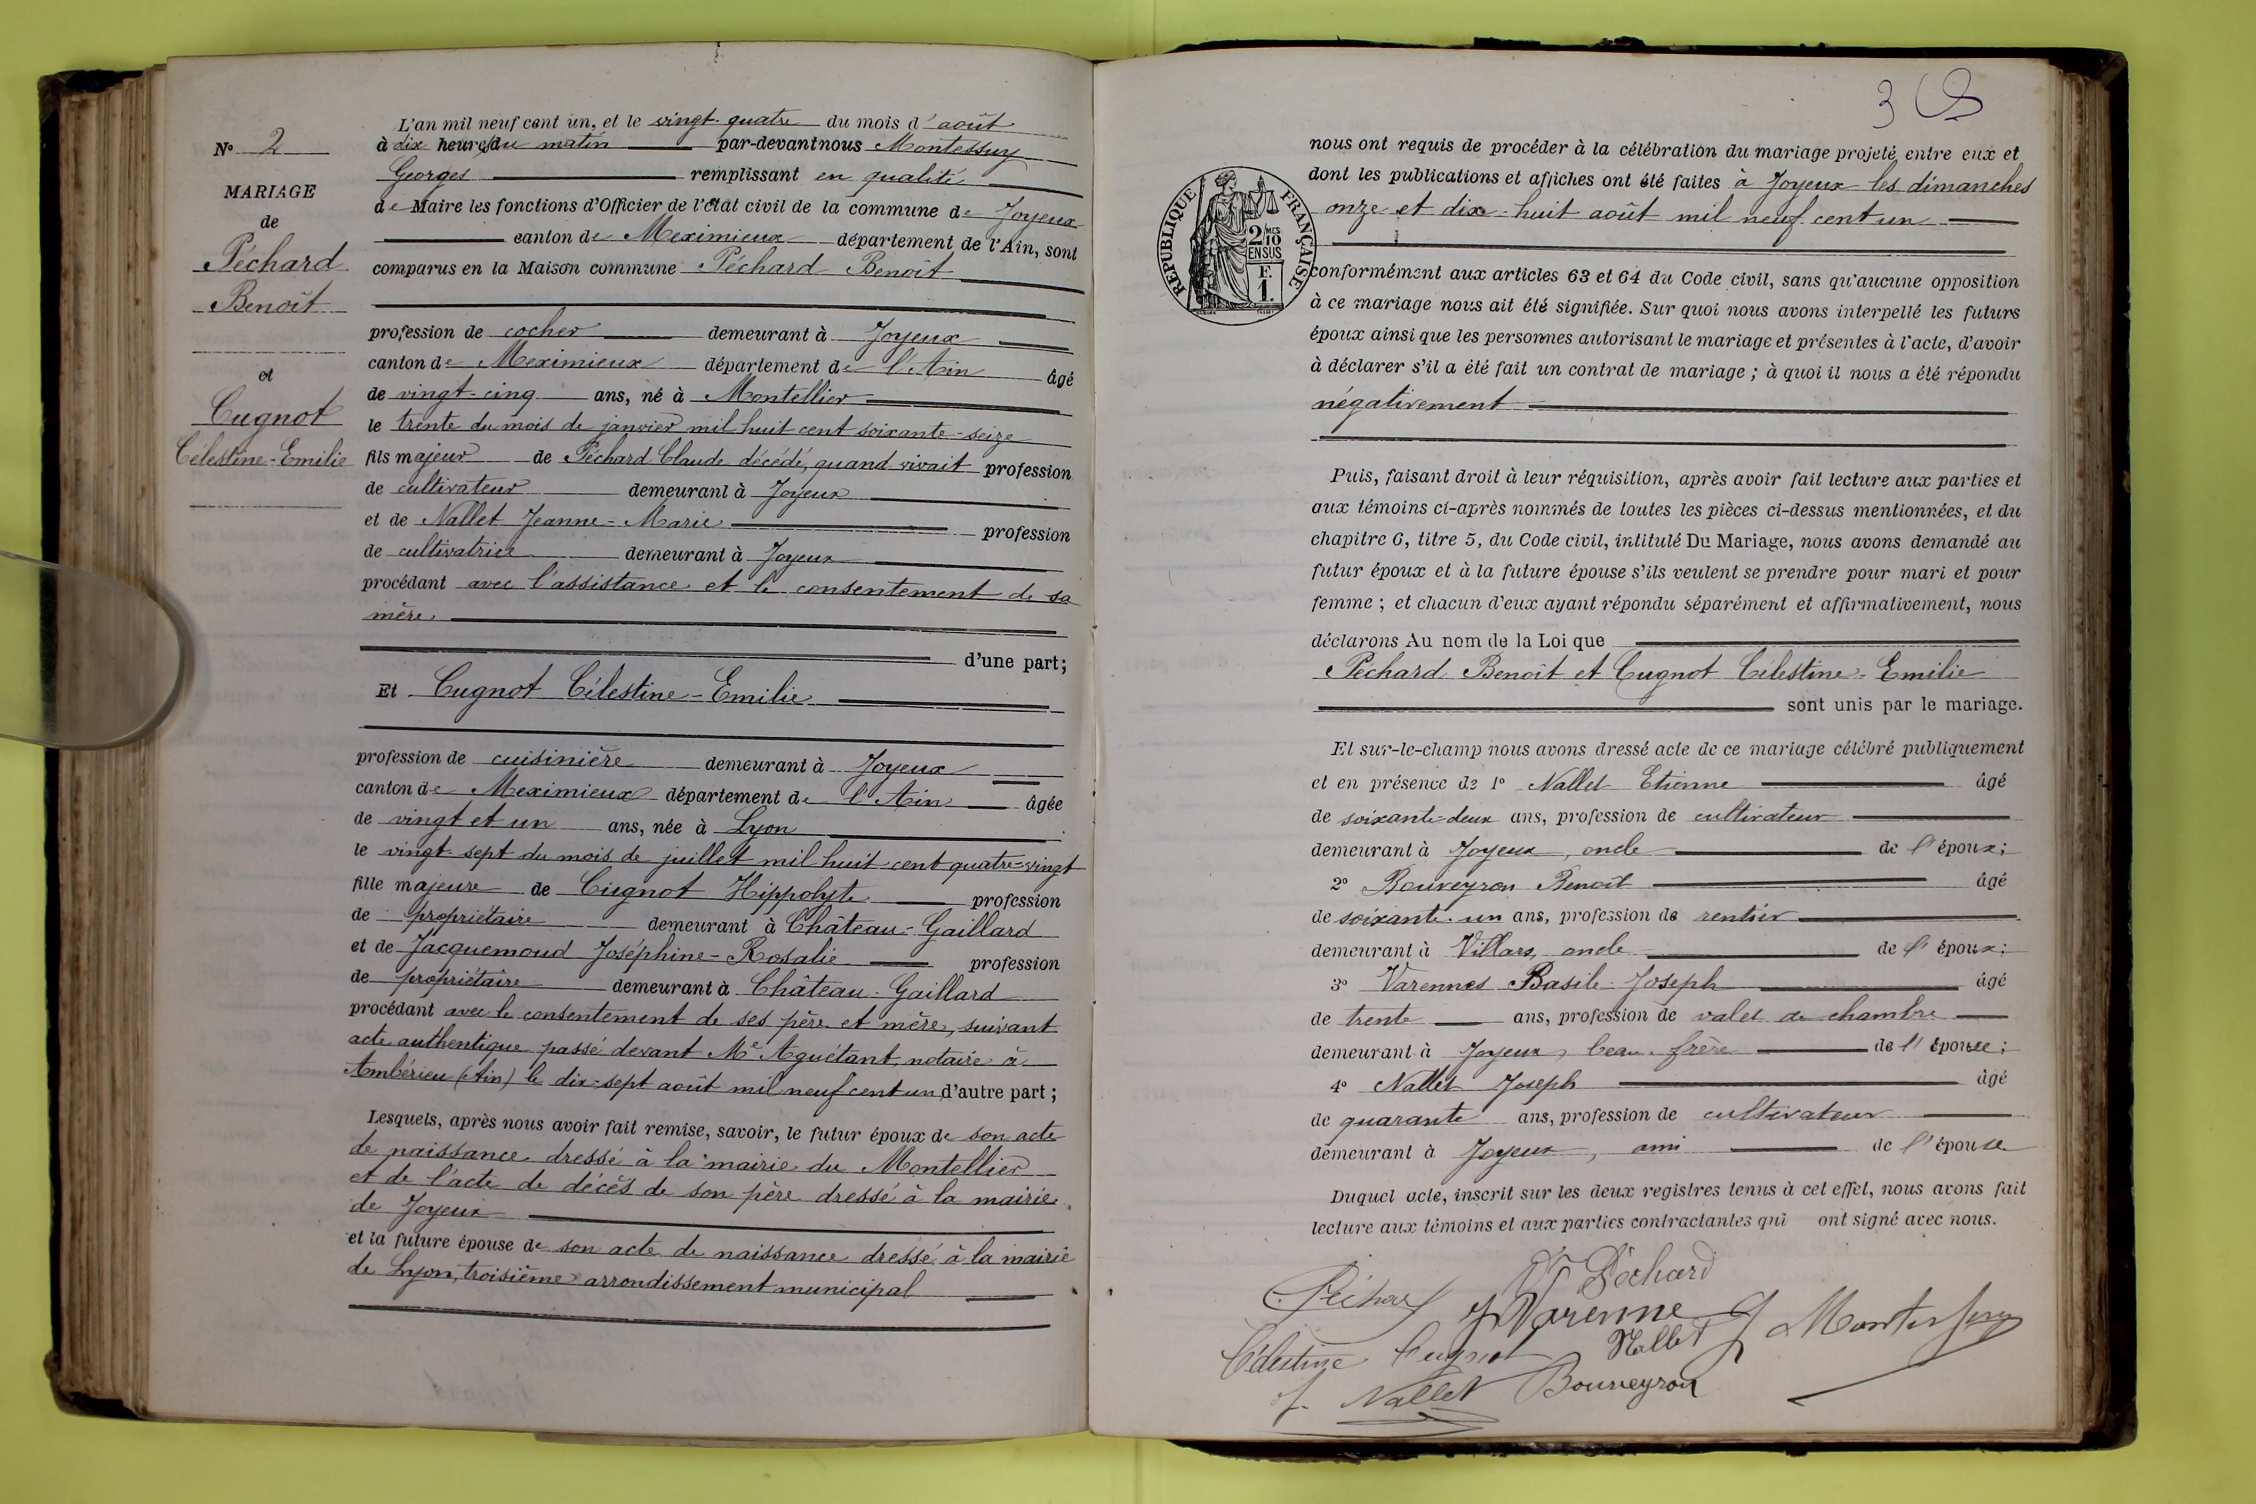 N° 2
MARIAGE
de
Péchard
Benoît
et
Cugnot
Célestine-Emilie
L'an mil neuf cent un, et le vingt-quatre du mois d'août
à dix heures du matin par-devant nous Montessuy
Georges remplissant en qualité
de Maire les fonctions d'Officier de l'état civil de la commune de Joyeux
canton de Meximieux département de l'Ain, sont
comparus en la Maison commune Péchard Benoît
profession de cocher demeurant à Joyeux
canton de Meximieux département de l'Ain âgé
de vingt-cinq ans, né à Montellier
le trente du mois de janvier mil huit cent soixante-seize
fils majeur de Péchard Claude décédé, quand vivait profession
de cultivateur demeurant à Joyeux
et de Nallet Jeanne-Marie profession
de cultivatrice demeurant à Joyeux
procédant avec l'assistance et le consentement de sa
mère
d'une part;
Et Cugnot Célestine-Emilie
profession de cuisinière demeurant à Joyeux
canton de Meximieux département de l'Ain âgée
de vingt et un ans, née à Lyon
le vingt-sept du mois de juillet mil huit cent quatre-vingt
fille majeure de Cugnot Hippolyte profession
de propriétaire demeurant à Château-Gaillard
et de Jacquemoud Joséphine-Rosalie profession
de propriétaire demeurant à Château-Gaillard
procédant avec le consentement de ses père et mère, suivant
acte authentique passé devant Me Aguétant, notaire à
Ambérieu (Ain) le dix-sept août mil neuf cent un, d'autre part;
Lesquels, après nous avoir fait remise, savoir, le futur époux de son acte
de naissance dressé à la mairie du Montellier
et de l'acte de décès de son père dressé à la mairie
de Joyeux
et la future épouse de son acte de naissance dressé à la mairie
de Lyon, troisième arrondissement municipal
3
RÉPUBLIQUE FRANÇAISE
2/10MES
EN SUS
F.
1.
nous ont requis de procéder à la célébration du mariage projeté entre eux et
dont les publications et affiches ont été faites à Joyeux les dimanches
onze et dix-huit août mil neuf cent un
conformément aux articles 63 et 64 du Code civil, sans qu'aucune opposition
à ce mariage nous ait été signifiée. Sur quoi nous avons interpellé les futurs
époux ainsi que les personnes autorisant le mariage et présentes à l'acte, d'avoir
à déclarer s'il a été fait un contrat de mariage; à quoi il nous a été répondu
négativement
Puis, faisant droit à leur réquisition, après avoir fait lecture aux parties et
aux témoins ci-après nommés de toutes les pièces ci-dessus mentionnées, et du
chapitre 6, titre 5, du Code civil, intitulé Du Mariage, nous avons demandé au
futur époux et à la future épouse s'ils veulent se prendre pour mari et pour
femme; et chacun d'eux ayant répondu séparément et affirmativement, nous
déclarons Au nom de la Loi que
Péchard Benoît et Cugnot Célestine-Emilie
sont unis par le mariage.
Et sur-le-champ nous avons dressé acte de ce mariage célébré publiquement
et en présence de 1° Nallet Etienne âgé
de soixante-deux ans, profession de cultivateur
demeurant à Joyeux, oncle de l'époux;
2° Bouveyron Benoît âgé
de soixante-un ans, profession de rentier
demeurant à Villars, oncle de l'époux;
3° Varennes Basile-Joseph âgé
de trente ans, profession de valet de chambre
demeurant à Joyeux, beau-frère de l'épouse;
4° Nallet Joseph âgé
de quarante ans, profession de cultivateur
demeurant à Joyeux, ami de l'épouse
Duquel acte, inscrit sur les deux registres tenus à cet effet, nous avons fait
lecture aux témoins et aux parties contractantes qui ont signé avec nous.
Péchard
Péchard
J Varenne
G Montessuy
Célestine Cugnot
Nallet
J. Nallet
Bouveyron